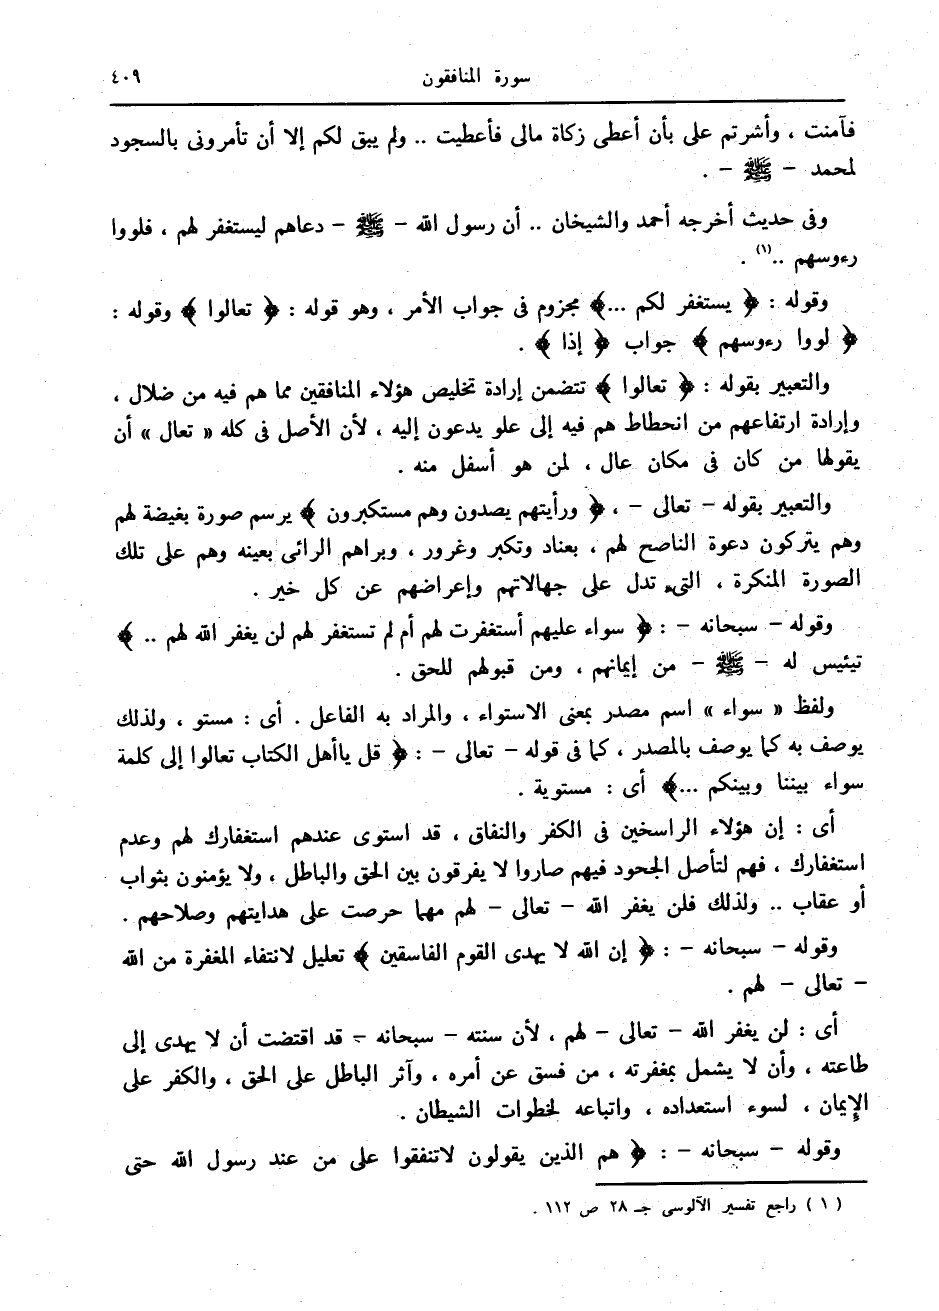 سورة المنافقون ٤٠٩
فآمنت ، وأشرتم على بأن أعطى زكاة مالى فأعطيت .. ولم يبق لكم إلا أن تأمرونى بالسجود
لمحمد – ﷺ – .
وفى حديث أخرجه أحمد والشيخان .. أن رسول الله – ﷺ – دعاهم ليستغفر لهم ، فلووا
رءوسهم ..(١) .
وقوله : ﴿ يستغفر لكم ...﴾ مجزوم فى جواب الأمر ، وهو قوله : ﴿ تعالوا ﴾ وقوله :
﴿ لووا رءوسهم ﴾ جواب ﴿ إذا ﴾ .
والتعبير بقوله : ﴿ تعالوا ﴾ تتضمن إرادة تخليص هؤلاء المنافقين مما هم فيه من ضلال ،
وإرادة ارتفاعهم من انحطاط هم فيه إلى علو يدعون إليه ، لأن الأصل فى كله « تعال » أن
يقولها من كان فى مكان عال ، لمن هو أسفل منه .
والتعبير بقوله – تعالى – ، ﴿ ورأيتهم يصدون وهم مستكبرون ﴾ يرسم صورة بغيضة لهم
وهم يتركون دعوة الناصح لهم ، بعناد وتكبر وغرور ، ويراهم الرائى بعينه وهم على تلك
الصورة المنكرة ، التى تدل على جهالاتهم وإعراضهم عن كل خير .
وقوله – سبحانه – : ﴿ سواء عليهم أستغفرت لهم أم لم تستغفر لهم لن يغفر الله لهم .. ﴾
تيئيس له – ﷺ – من إيمانهم ، ومن قبولهم للحق .
ولفظ « سواء » اسم مصدر بمعنى الاستواء ، والمراد به الفاعل . أى : مستو ، ولذلك
يوصف به كما يوصف بالمصدر ، كما فى قوله – تعالى – : ﴿ قل ياأهل الكتاب تعالوا إلى كلمة
سواء بيننا وبينكم ...﴾ أى : مستوية .
أى : إن هؤلاء الراسخين فى الكفر والنفاق ، قد استوى عندهم استغفارك لهم وعدم
استغفارك ، فهم لتأصل الجحود فيهم صاروا لا يفرقون بين الحق والباطل ، ولا يؤمنون بثواب
أو عقاب .. ولذلك فلن يغفر الله – تعالى – لهم مهما حرصت على هدايتهم وصلاحهم .
وقوله – سبحانه – : ﴿ إن الله لا يهدى القوم الفاسقين ﴾ تعليل لانتفاء المغفرة من الله
– تعالى – لهم .
أى : لن يغفر الله – تعالى – لهم ، لأن سنته – سبحانه – قد اقتضت أن لا يهدى إلى
طاعته ، وأن لا يشمل بمغفرته ، من فسق عن أمره ، وآثر الباطل على الحق ، والكفر على
الإيمان ، لسوء استعداده ، واتباعه لخطوات الشيطان .
وقوله – سبحانه – : ﴿ هم الذين يقولون لاتنفقوا على من عند رسول الله حتى
( ١ ) راجع تفسير الآلوسى جـ ٢٨ ص ١١٢ .